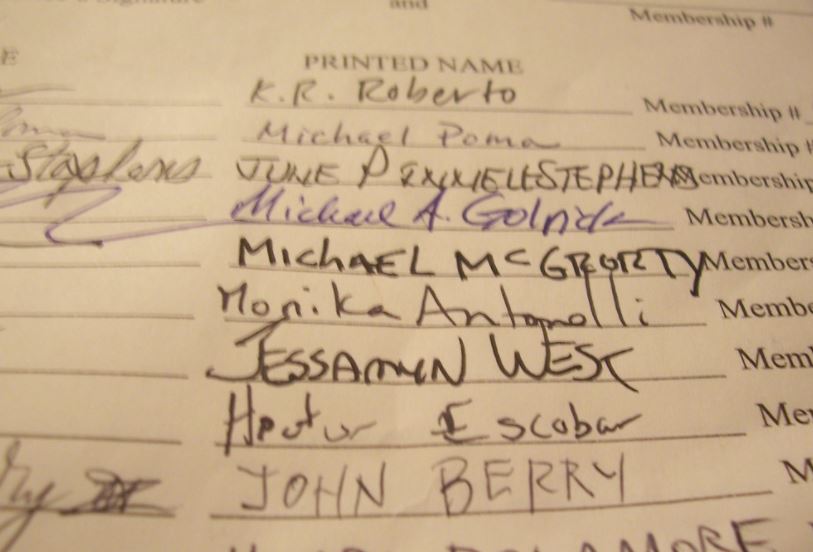 and Membership #
PRINTED NAME
K.R. Roberto Membership #
Michael Poma Membership #
Stephens JUNE STEPHENS Membership
Michael A. Golrick Membersh
MICHAEL MCGRORTY Members
Monika Antonelli Membe
JESSAMYN WEST Mem
Hector Escobar Me
JOHN BERRY M